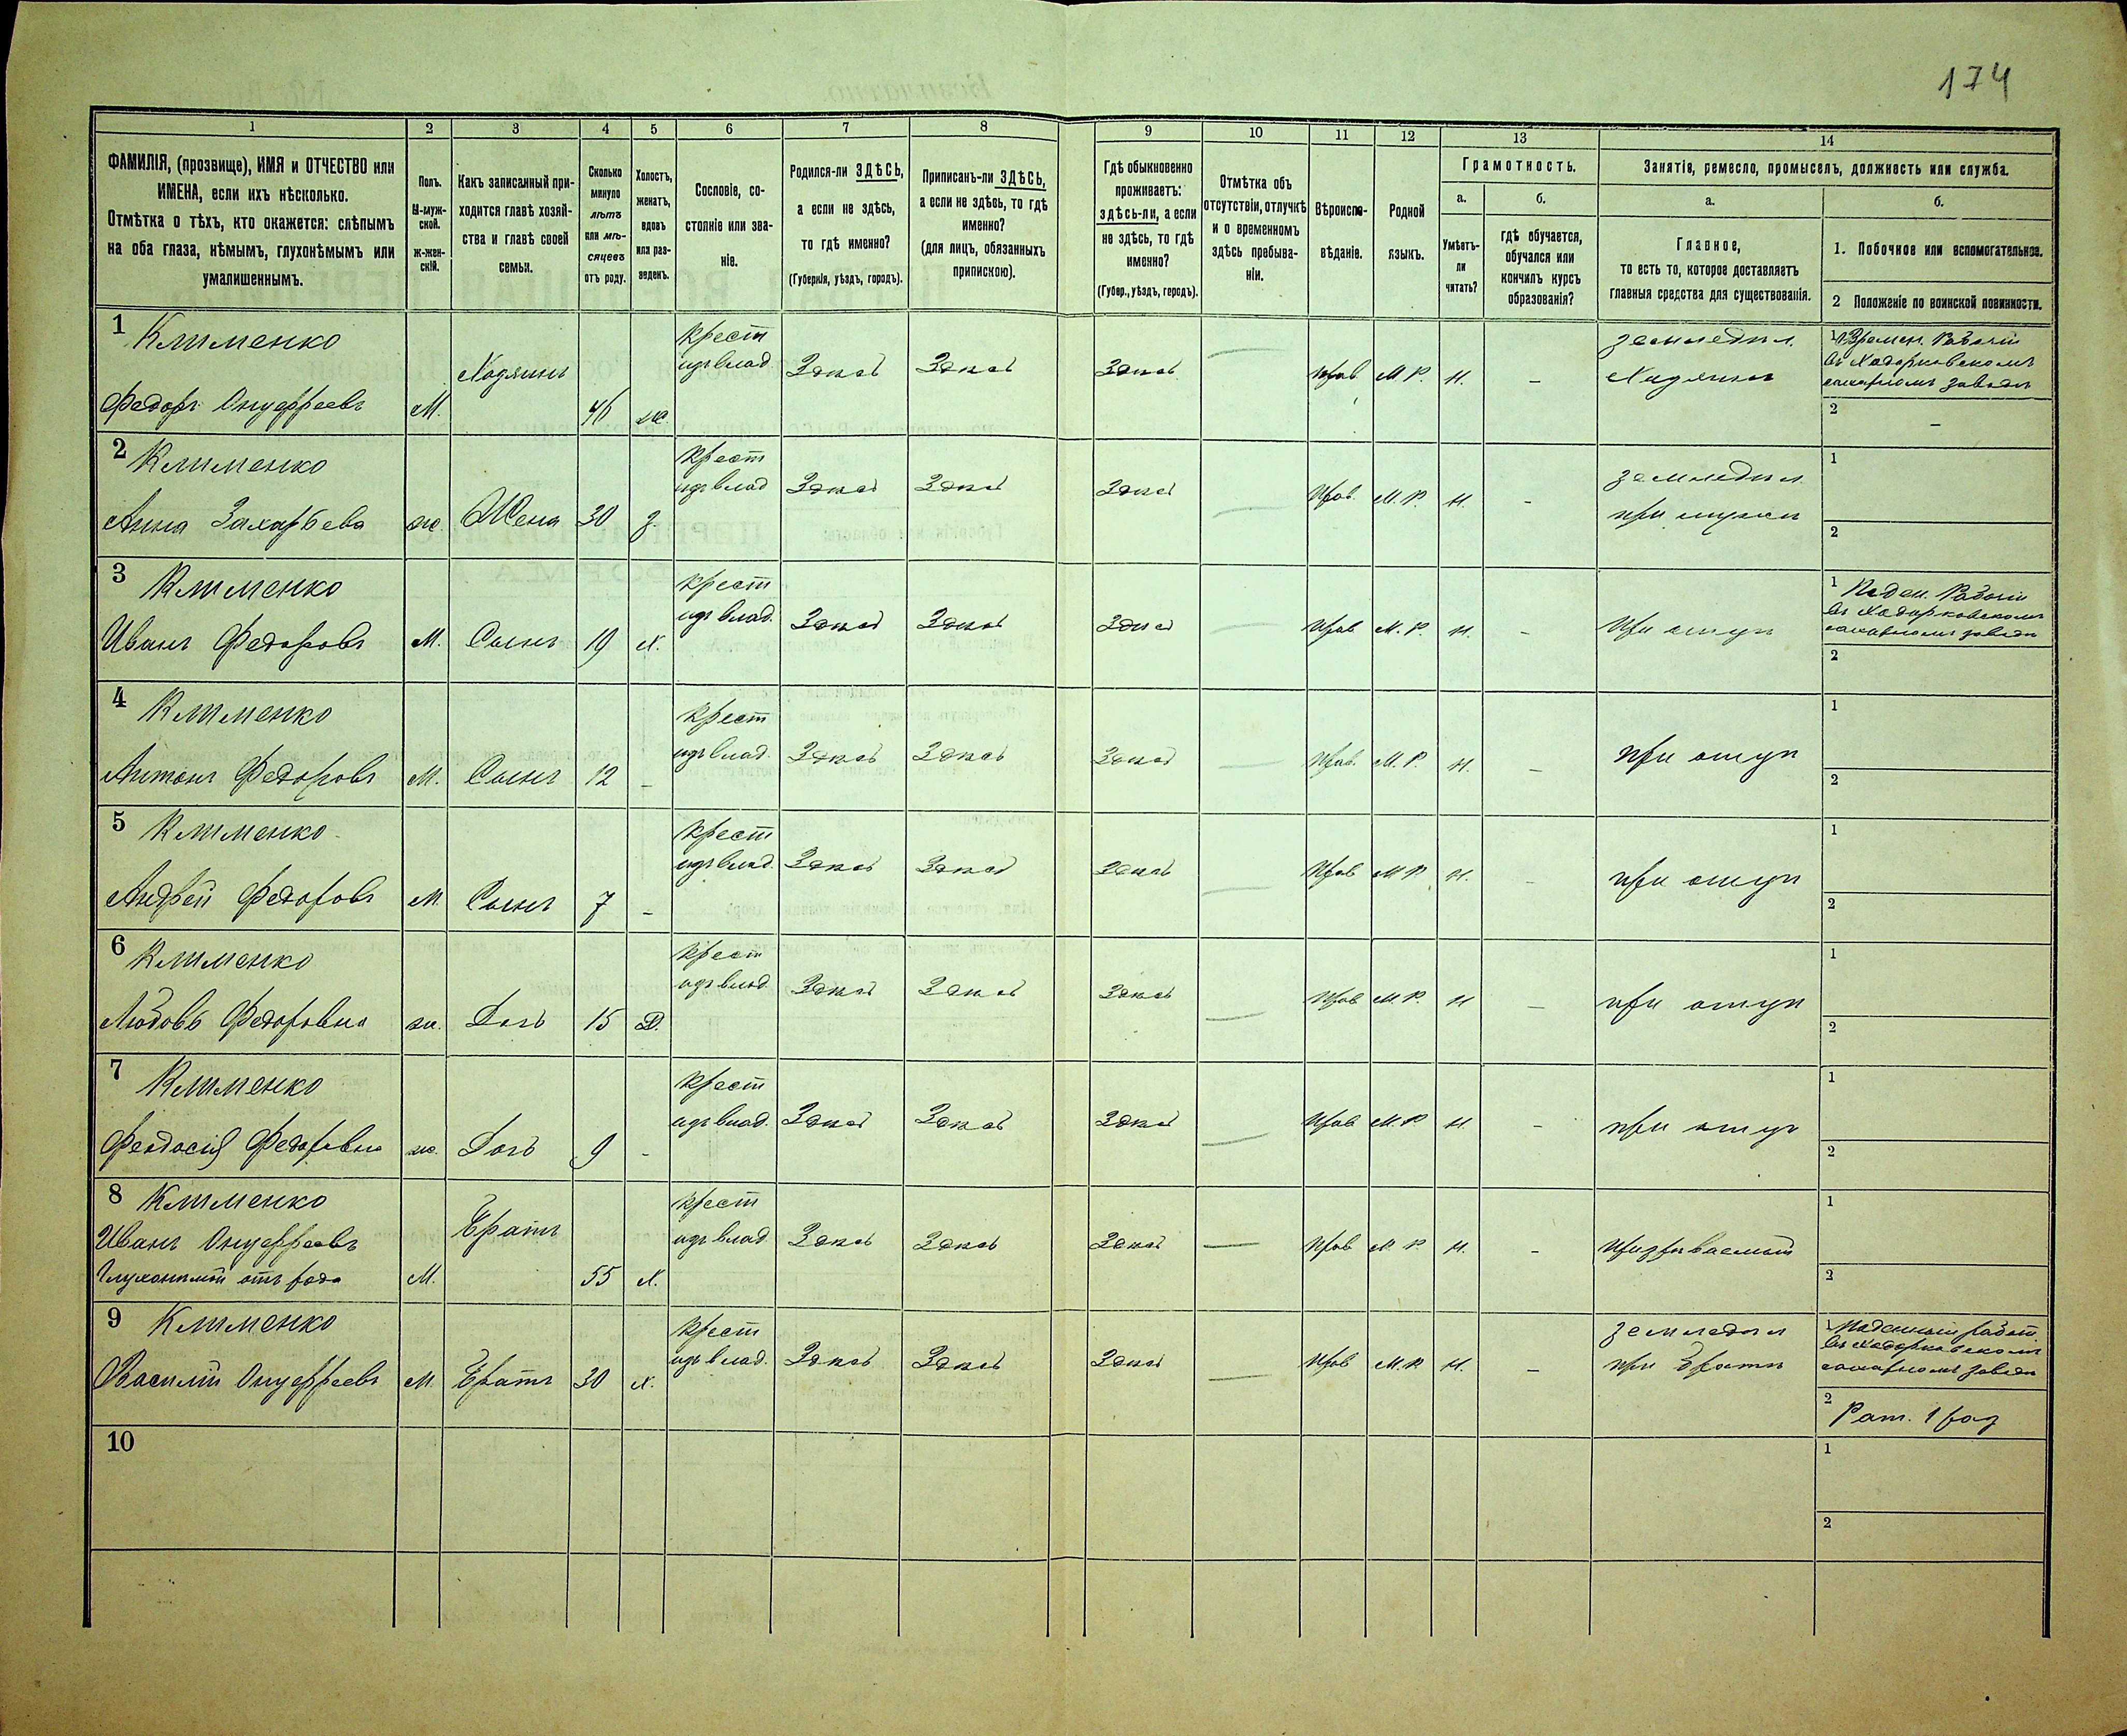 174
1 2 3 4 5 6 7 8 9 10 11 12 13 14
ФАМИЛІЯ, (прозвище), ИМЯ и ОТЧЕСТВО или
ИМЕНА, если ихъ нѣсколько.
Отмѣтка о тѣхъ, кто окажется: слѣпымъ
на оба глаза, нѣмымъ, глухонѣмымъ или
умалишеннымъ.
Полъ.
М-муж-
ской.
ж-жен-
скій.
Какъ записанный при-
ходится главѣ хозяй-
ства и главѣ своей
семьи.
Сколько
минуло
лѣтъ
или мѣ-
сяцевъ
отъ роду.
Холостъ,
женатъ,
вдовъ
или раз-
веденъ.
Сословіе, со-
стояніе или зва-
ніе.
Родился-ли ЗДѢСЬ,
а если не здѣсь,
то гдѣ именно?
(Губернія, уѣздъ, городъ).
Приписанъ-ли ЗДѢСЬ,
а если не здѣсь, то гдѣ
именно?
(для лицъ, обязанныхъ
припискою).
Гдѣ обыкновенно
проживаетъ:
здѣсь-ли, а если
не здѣсь, то гдѣ
именно?
(Губер., уѣздъ, городъ).
Отмѣтка объ
отсутствіи, отлучкѣ
и о временномъ
здѣсь пребыва-
ніи.
Вѣроиспо-
вѣданіе.
Родной
языкъ.
Грамотность.
а.
Умѣетъ-
ли
читать?
б.
гдѣ обучается,
обучался или
кончилъ курсъ
образованія?
Занятія, ремесло, промыселъ, должность или служба.
а.
Главное,
то есть то, которое доставляетъ
главныя средства для существованія.
б.
1. Побочное или вспомогательное.
2 Положеніе по воинской повинности.
1 Клименко
Федоръ Онуффреевъ
М.
Хозяинъ
46
ж.
крест
изъ влад.
Здѣсь
Здѣсь
Здѣсь
—
прав
М. Р.
н.
–
земледѣл.
Хозяинъ
1 Времен. Рабочій
въ Ходорковскомъ
сахарномъ заводѣ
2 –
2 Клименко
Анна Захарьева
ж.
Жена
30
з.
крест
изъ влад
Здѣсь
Здѣсь
Здѣсь
—
прав.
М. Р.
н.
–
земледѣл
при мужѣ
1
2
3 Клименко
Иванъ Федоровъ
М.
Сынъ
19
х.
крест
изъ влад.
Здѣсь
Здѣсь
Здѣсь
—
прав
М. Р.
н.
–
при отцѣ
1 Поден. Рабочій
въ Ходорковскомъ
сахарномъ заводѣ
2
4 Клименко
Антонъ Федоровъ
М.
Сынъ
12
–
крест
изъ влад.
Здѣсь
Здѣсь
Здѣсь
—
прав.
М. Р.
н.
–
при отцѣ
1
2
5 Клименко
Андрей Федоровъ
М.
Сынъ
7
–
крест
изъ влад.
Здѣсь
Здѣсь
Здѣсь
—
прав
М Р
н.
–
при отцѣ
1
2
6 Клименко
Любовь Федоровна
ж.
Дочь
15
Д.
крест
изъ влад
Здѣсь
Здѣсь
Здѣсь
—
прав
М Р.
н
–
при отцѣ
1
2
7 Клименко
Феодосія Федоровна
ж.
Дочь
9
-
крест
изъ влад.
Здѣсь
Здѣсь
Здѣсь
—
прав
М. Р
н.
–
при отцѣ
1
2
8 Клименко
Иванъ Онуффреевъ
Глухонѣмой отъ рода
М.
Братъ
55
х.
крест
изъ влад
Здѣсь
Здѣсь
Здѣсь
—
прав
М. Р.
н.
–
призрѣваемый
1
2
9 Клименко
Василій Онуффреевъ
М.
Братъ
30
х.
крест
изъ влад.
Здѣсь
Здѣсь
Здѣсь
—
прав
М. Р
н.
–
земледѣл
при братѣ
1 Поденный работ.
въ Ходорковскомъ
сахарномъ заводѣ
2 Рат. 1 раз
10
1
2